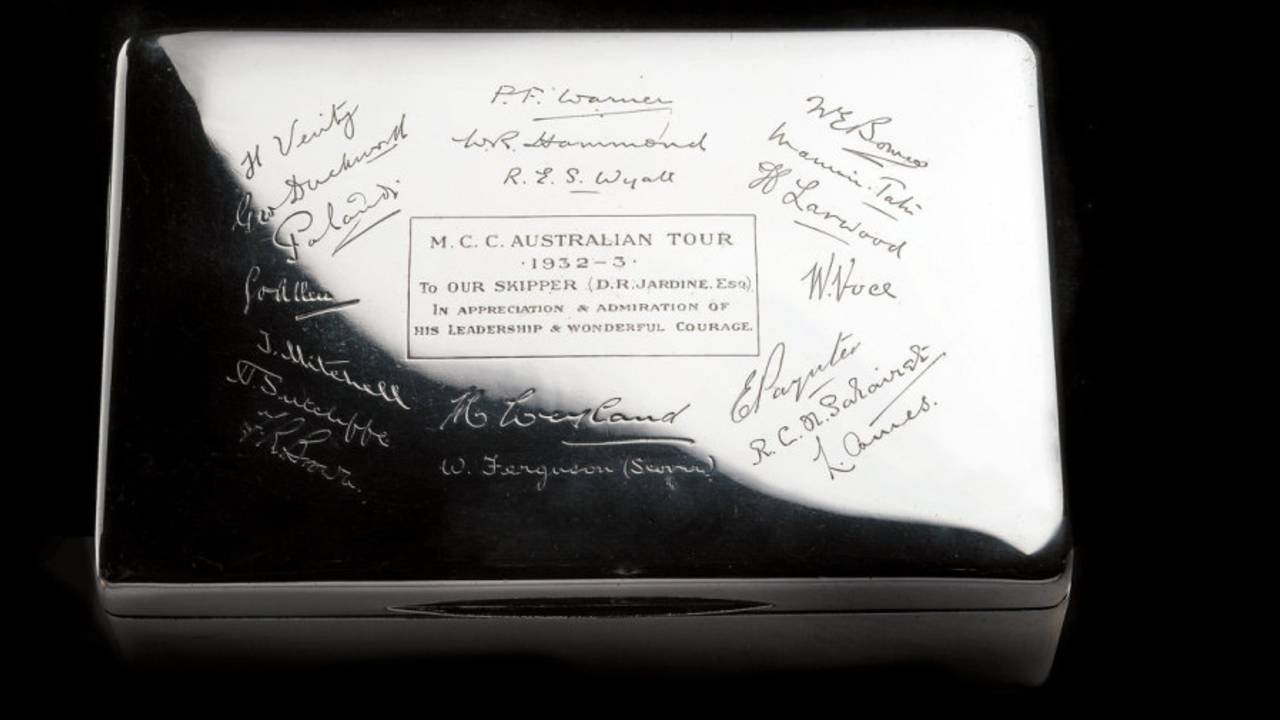 P.F. Warner
W.R. Hammond
R.E.S. Wyatt
H Verity
Geo Duckworth
Pataudi
G O Allen
T. Mitchell
H. Sutcliffe
F R Brown.
M. C. C. AUSTRALIAN TOUR
·1932-3·
To OUR SKIPPER (D.R. JARDINE. Esq).
IN APPRECIATION & ADMIRATION OF
HIS LEADERSHIP & WONDERFUL COURAGE.
M Leyland
W. Ferguson (Scorer)
W E Bowes
Maurice. Tate
H Larwood
W. Voce
E Paynter
R. C. N. Palairet
L. Ames.